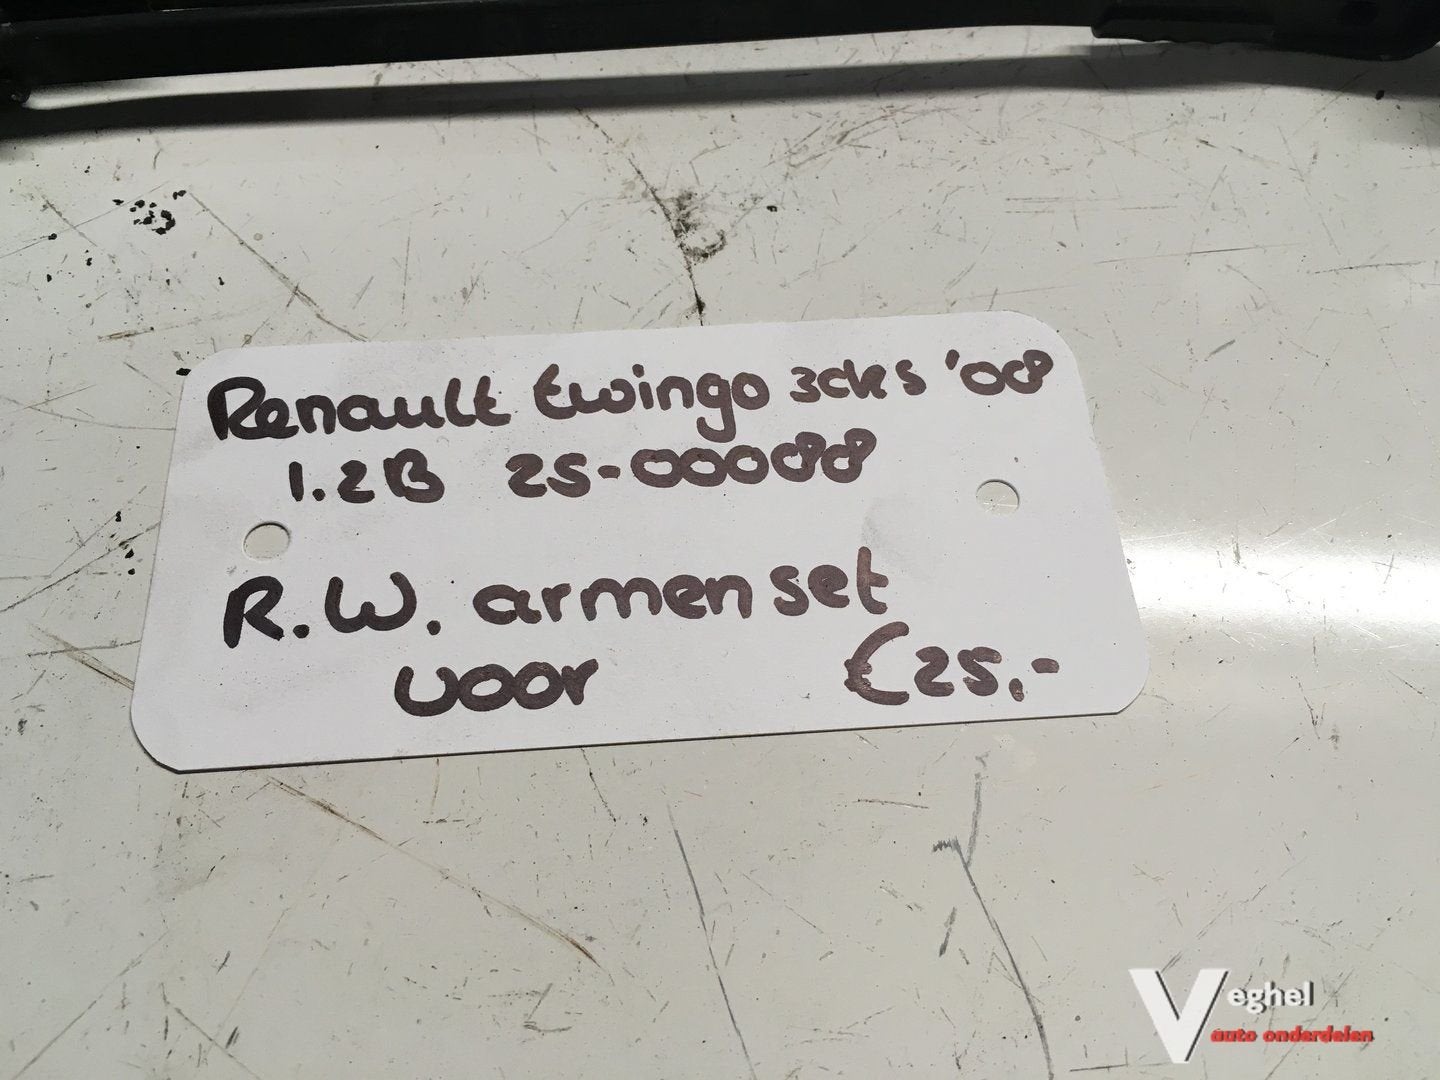 Renault twingo 3drs '08
1.2B 25-000088
R.W. armen set
voor €25,-
Veghel
auto onderdelen